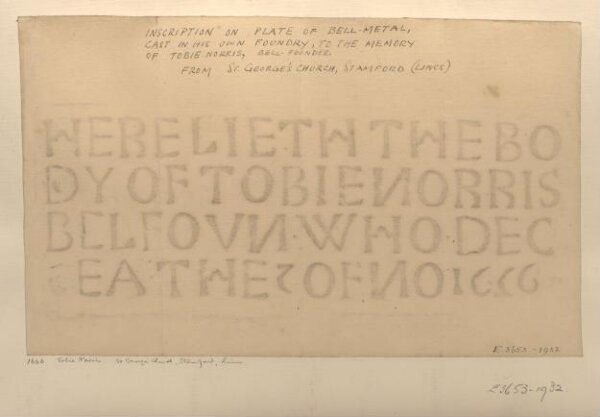 INSCRIPTION ON PLATE OF BELL-METAL,
CAST IN HIS OWN FOUNDRY, TO THE MEMORY
OF TOBIE NORRIS, BELL-FOUNDER
FROM ST. GEORGE'S CHURCH, STAMFORD (LINCS)
HERE LIETH THE BO
DY OF TOBIE NORRIS
BELFOVN·WHO·DEC
EA THE 2 OF NO 1626
E 3653-1932
1626 Tobie Norris St George's Church, Stamford, Lincs
E3653-1932.